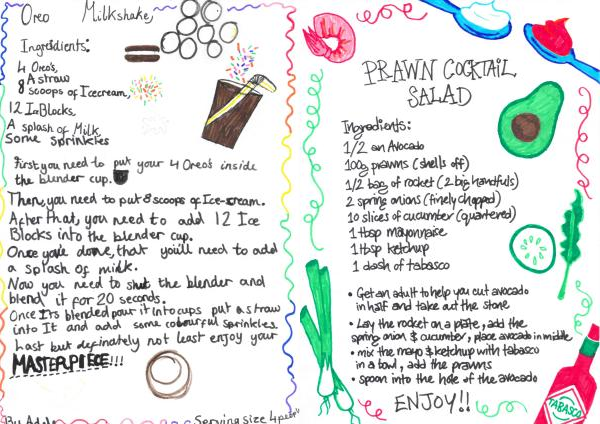 Oreo Milkshake,
Ingridients:
4 Oreo's,
A straw
8 scoops of Icecream,
12 IceBlocks,
A splash of Milk
Some sprinkles
First you need to put your 4 Oreo's inside
the blender cup.
Then you need to put 8 scoops of Ice-cream.
After that, you need to add 12 Ice
Blocks into the blender cup.
Once you're done, that you'll need to add
a splash of milk.
Now you need to shut the blender and
blend it for 20 seconds.
Once It's blended pour it into cups put a straw
into It and add some colourful sprinkles.
Last but definately not least enjoy your
MASTERPIECE!!!
By Adele
Serving size 4
PRAWN COCKTAIL
SALAD
Ingredients:
1/2 an Avocado
100g prawns (shells off)
1/2 bag of rocket (2 big handfuls)
2 spring onions (finely chopped)
10 slices of cucumber (quartered)
1 tbsp mayonnaise
1 tbsp ketchup
1 dash of tabasco
• Get an adult to help you cut avocado
in half and take out the stone
• Lay the rocket on a plate, add the
spring onion & cucumber, place avocado in middle
• mix the mayo & ketchup with tabasco
in a bowl, add the prawns
• spoon into the hole of the avocado
ENJOY!!
TABASCO